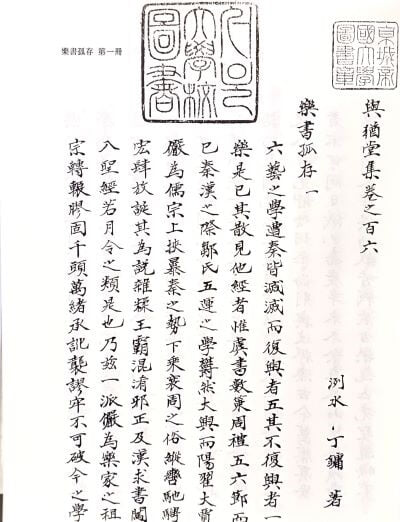 京城帝國大學圖書章
大學校
圖書
樂書孤存 第一冊
與猶堂集卷之百六
洌水·丁鏞 著
樂書孤存一
六藝之學遭秦皆減滅而復興者五其不復興者一
樂是已其散見他經者惟虞書數菓周禮五六節而
已秦漢之際鄒氏五運之學欝然大興而陽翟大賈
儼為儒宗上挾暴秦之勢下乗衰周之俗縱轡馳騁
宏肆放誕其為說雜糅王霸混淆邪正及漢求書闖
入聖經若月令之類是也乃茲一派儼為樂家之祖
宗轉輾膠固千頭萬緒承訛襲謬牢不可破今之學